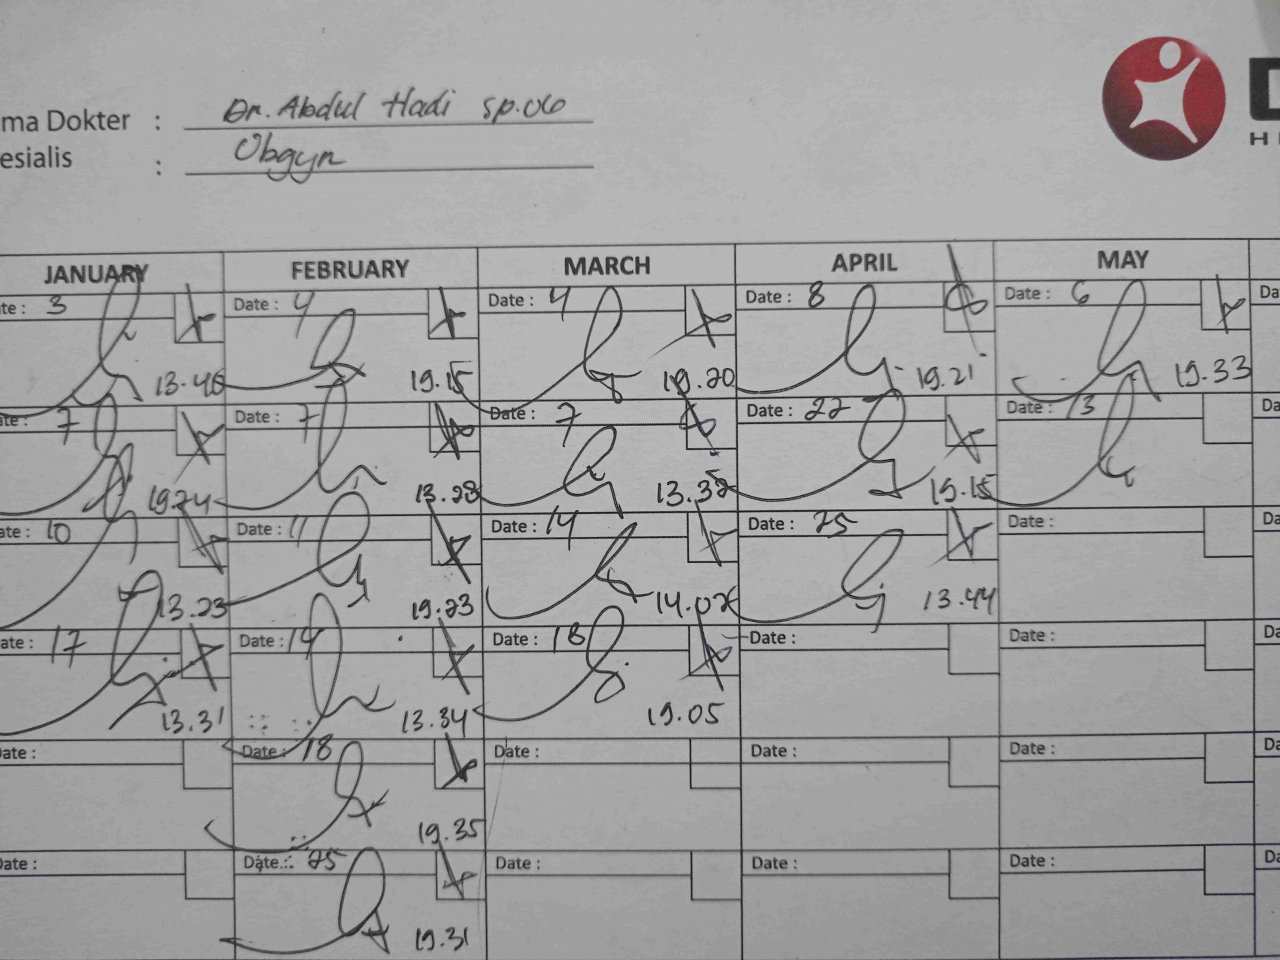 ma Dokter : Dr. Abdul Hadi sp.OG
esialis : Obgyn
D
H
JANUARY FEBRUARY MARCH APRIL MAY
te : 3 Date : 4 Date : 4 Date : 8 Date : 6 Da
13.46 19.15 19.20 19.21 19.33
te : 7 Date : 7 Date : 7 Date : 22 Date : 13 Da
19.24 13.28 13.32 19.15
ate : 10 Date : 11 Date : 14 Date : 25 Date : Da
13.23 19.23 14.02 13.44
ate : 17 Date : 14 Date : 18 Date : Date : Da
13.31 13.34 19.05
Date : Date : 18 Date : Date : Date : Da
19.35
Date : Date : 25 Date : Date : Date : Da
19.31